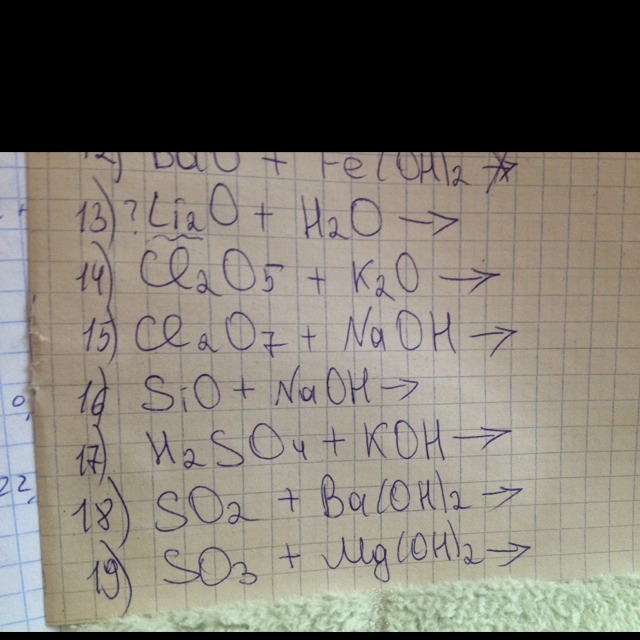 12) BaO + Fe(OH)₂ ↛
13) ? Li₂O + H₂O →
14) Cl₂O₅ + K₂O →
15) Cl₂O₇ + NaOH →
16) SiO + NaOH →
17) H₂SO₄ + KOH →
18) SO₂ + Ba(OH)₂ →
19) SO₃ + Mg(OH)₂ →
22